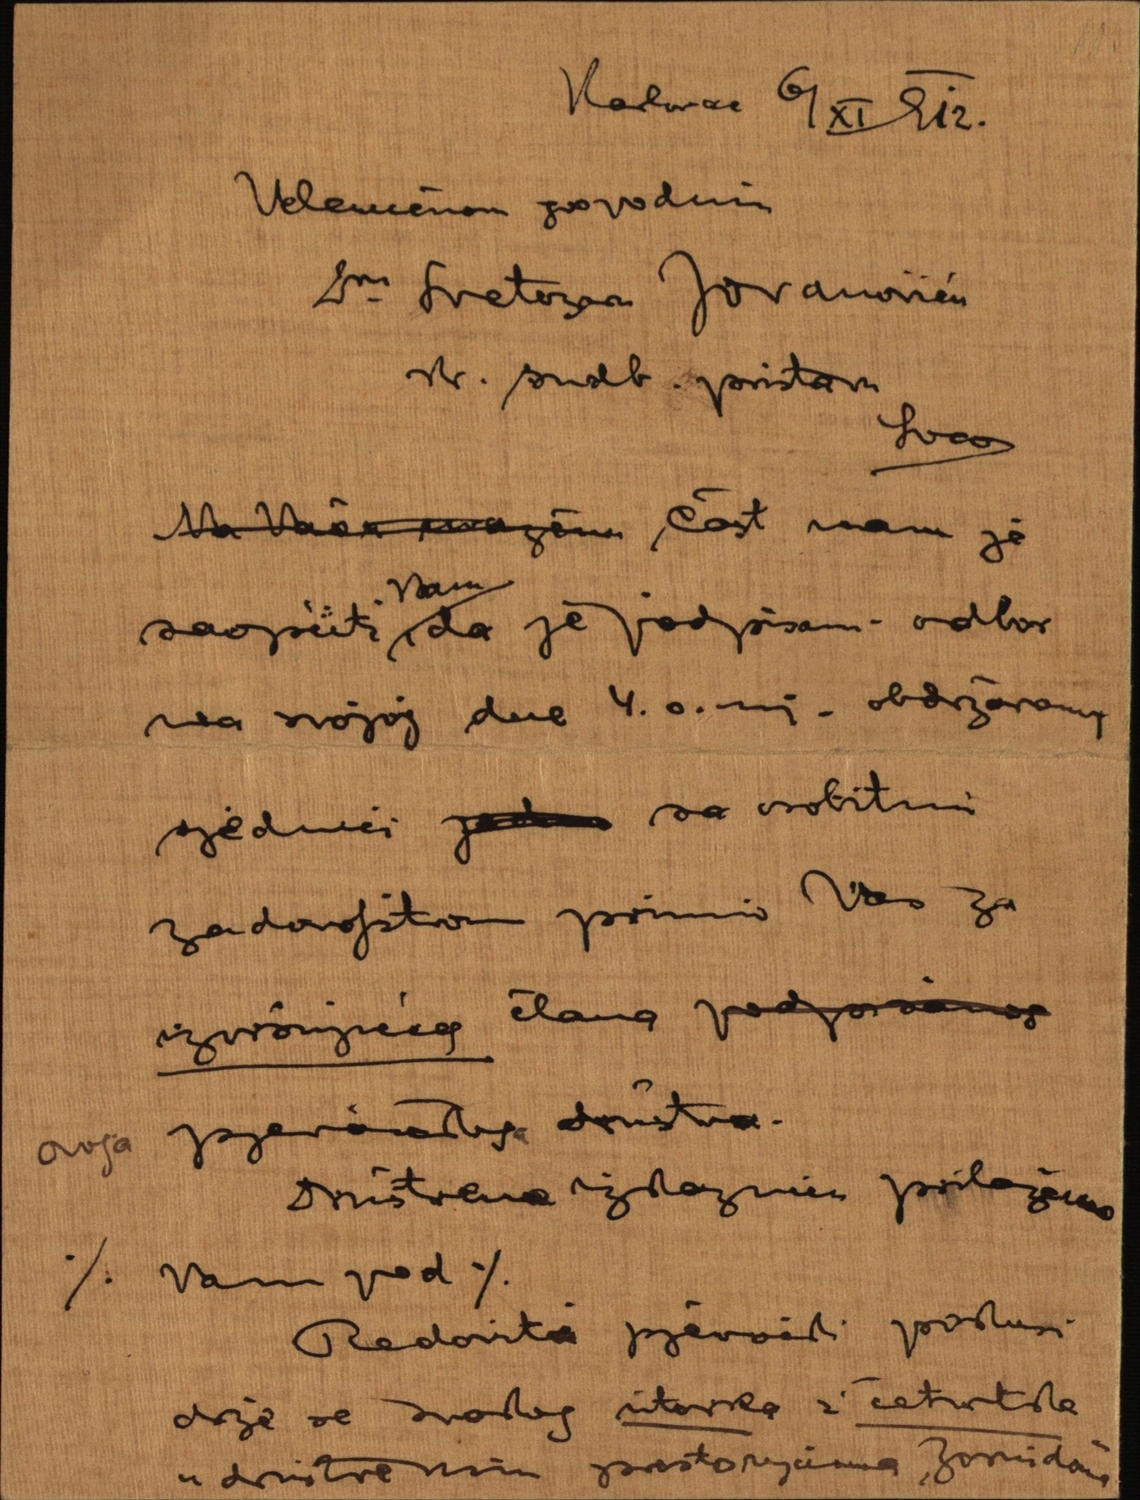 Karlovac 6/XI 912.
Velemožnom gospodinu
Dru Svetozaru Jovanoviću
kr. sudb. pristavu
Ovdo
Na Vašu čast nam je
saopćiti Vam da je podpisani odbor
na svojoj dne 4. o. mj. obdržavanoj
sjednici sa osobitim
zadovoljstvom primio Vas za
izvršujućeg člana
ovoga pjevačkoga društva.
Društvenu izkaznicu prilažemo
·/. Vam pod ·/.
Redoviti pjevački pokusi
drže se svakog utorka i četvrtka
u društvenim prostorijama "Zorin dom"